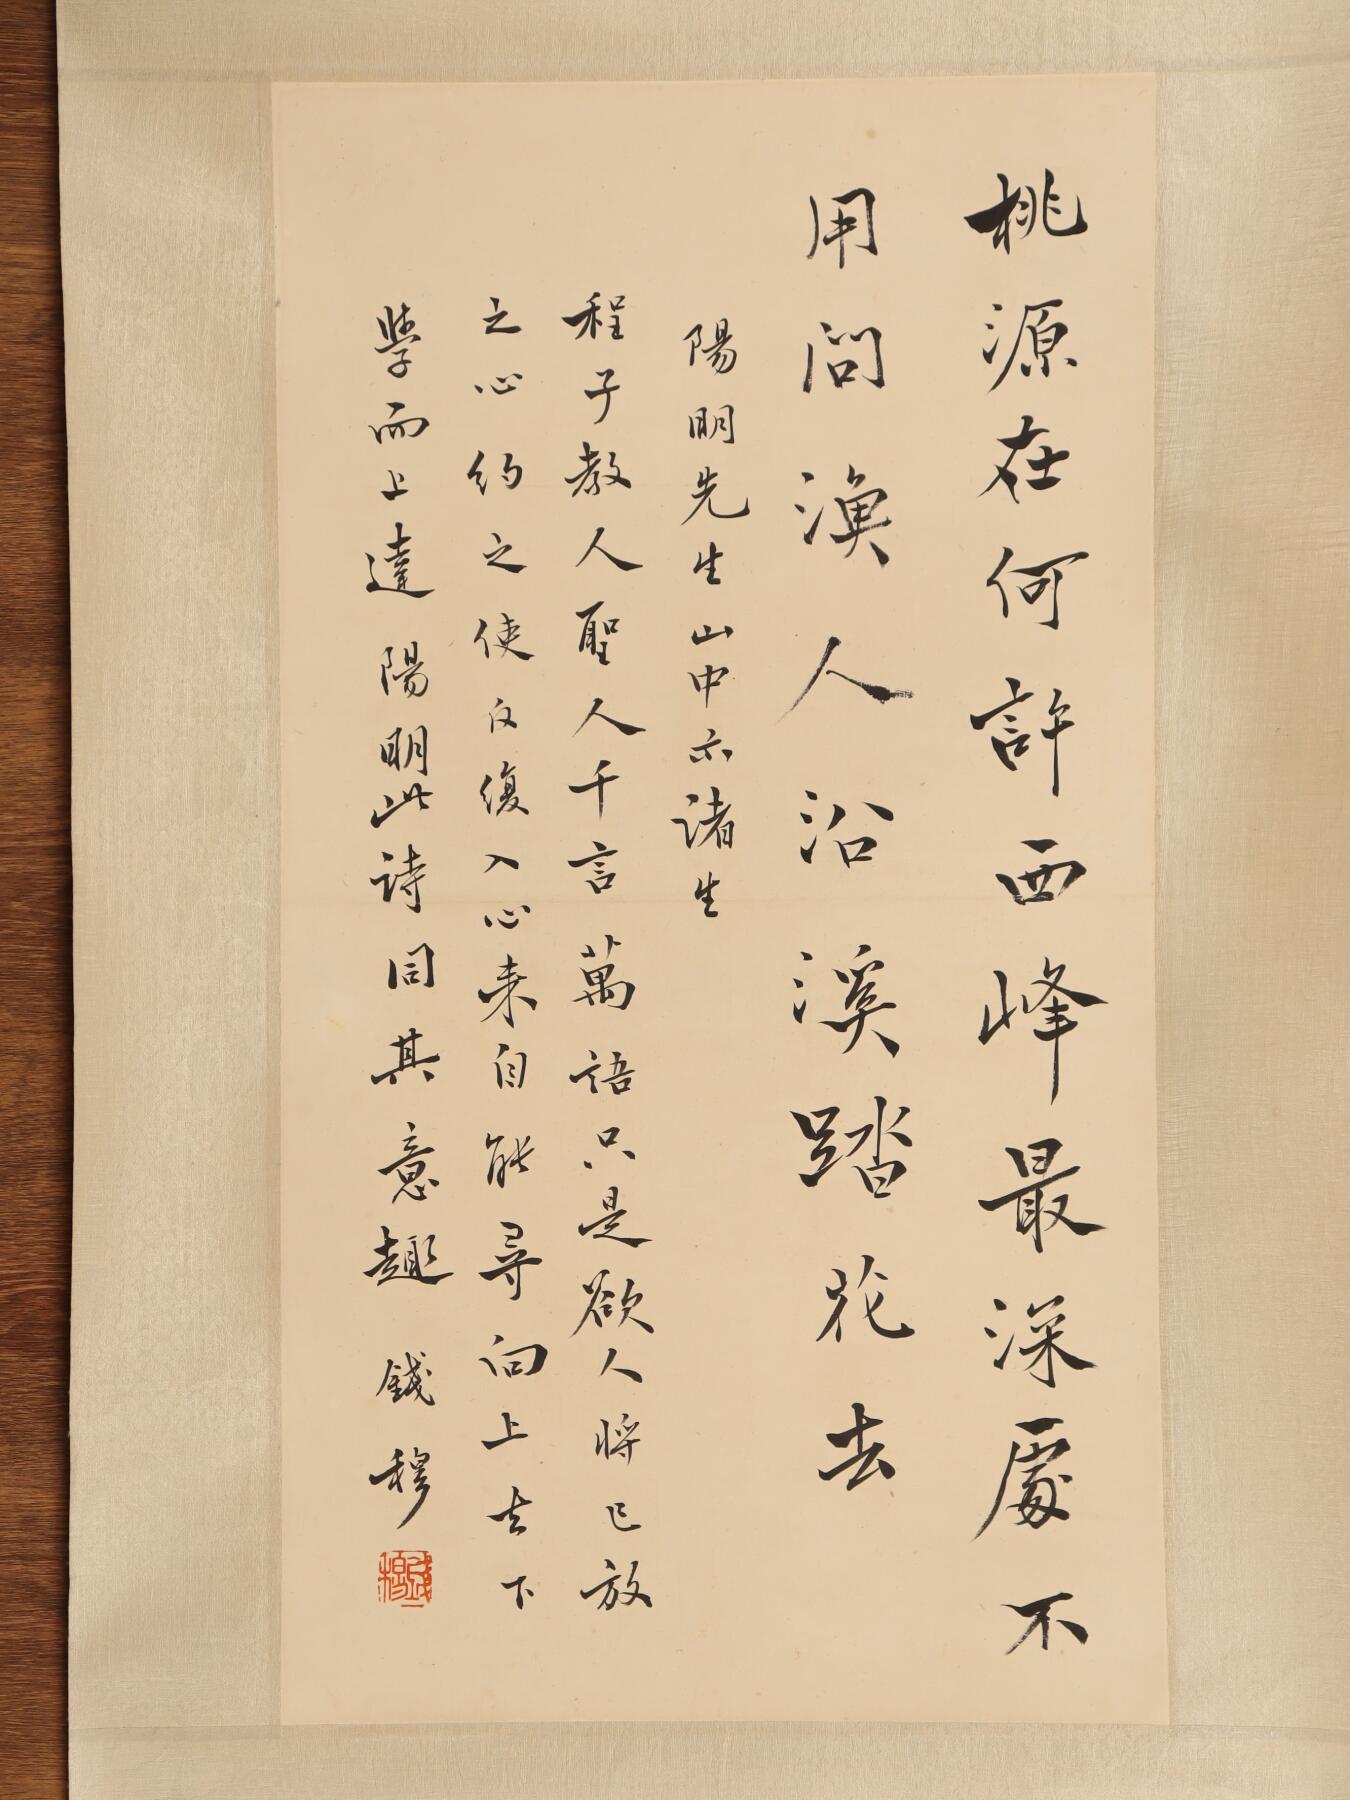 桃源在何許西峰最深處不
用問漁人沿溪踏花去
陽明先生山中示諸生
程子教人聖人千言萬語只是欲人將已放
之心約之使反復入心來自能尋向上去下
學而上達 陽明此詩同其意趣 錢穆
錢穆